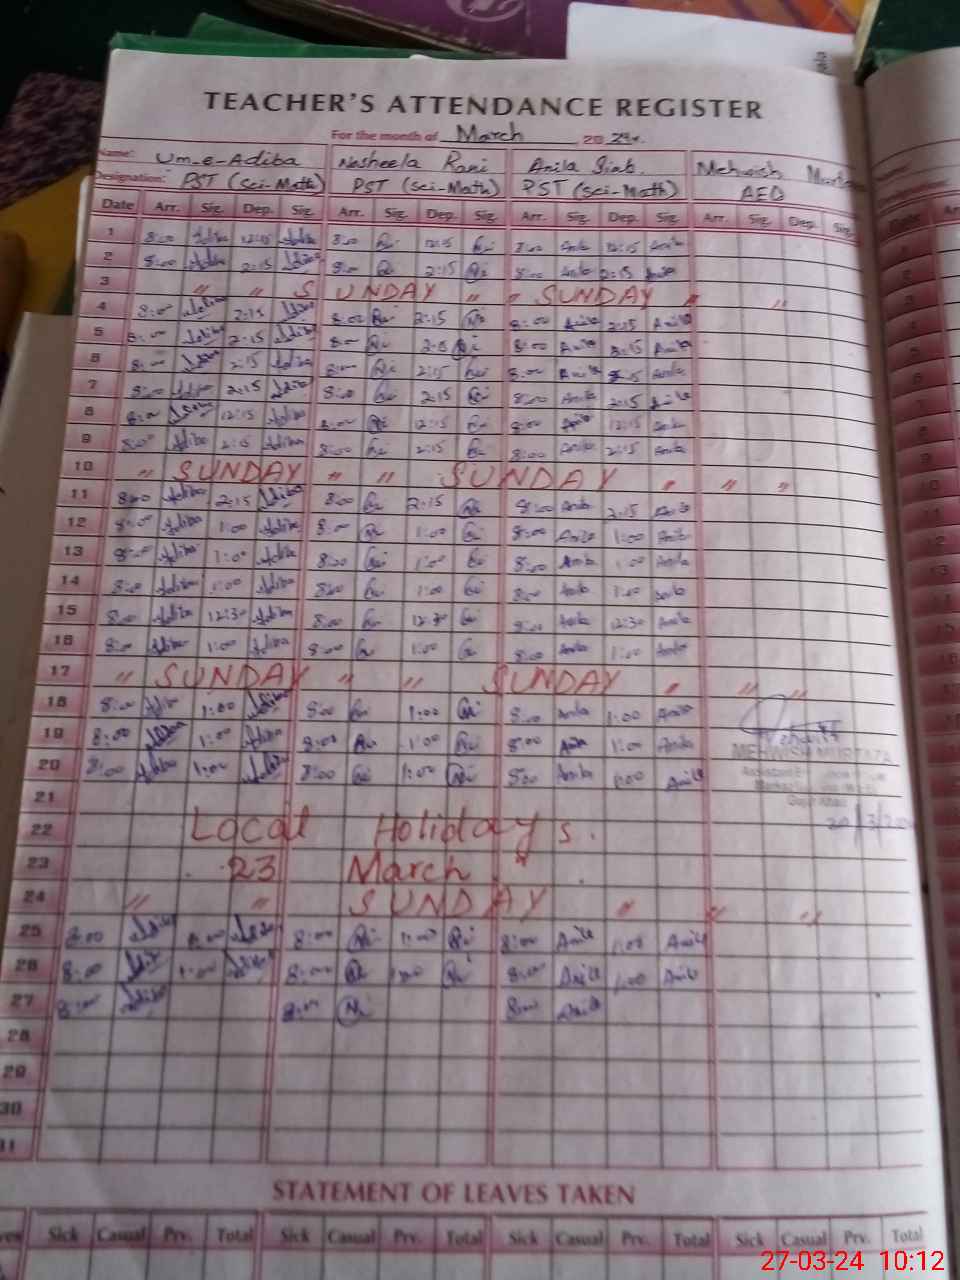 TEACHER'S ATTENDANCE REGISTER
For the month of March 2024.
Name: Um-e-Adiba Nosheela Rani Anila Mehwish
Designation: PST (Sci-Math) PST (Sci-Math) PST (Sci-Math) AEO
Date Arr. Sig. Dep. Sig. Arr. Sig. Dep. Sig. Arr. Sig. Dep. Sig. Arr. Sig. Dep. Sig.
1 8:00 Adiba 12:15 Adiba 8:00 12:15 8:00 Anila 12:15 Anila
2 8:00 Adiba 2:15 Adiba 8:00 2:15 8:00 Anila 2:15 Anila
3 " " SUNDAY " " SUNDAY " "
4 8:00 Adiba 2:15 Adiba 8:00 2:15 8:00 Anila 2:15 Anila
5 8:00 Adiba 2:15 Adiba 8:00 8:00 Anila 2:15 Anila
6 8:00 Adiba 2:15 Adiba 8:00 2:15 8:00 Anila Anila
7 8:00 Adiba 2:15 Adiba 8:00 2:15 8:00 Anila 2:15 Anila
8 8:00 Adiba 12:15 Adiba 8:00 12:15 8:00 Anila 12:15 Anila
9 8:00 Adiba 2:15 Adiba 8:00 2:15 8:00 Anila 2:15 Anila
10 " SUNDAY " " SUNDAY " " "
11 8:00 Adiba 2:15 Adiba 8:00 2:15 8:00 Anila 2:15 Anila
12 8:00 Adiba 1:00 Adiba 8:00 1:00 8:00 Anila 1:00 Anila
13 8:00 Adiba 1:00 Adiba 8:00 1:00 8:00 Anila 1:00 Anila
14 8:00 Adiba 1:00 Adiba 8:00 1:00 8:00 Anila 1:00 Anila
15 8:00 Adiba 12:30 Adiba 8:00 12:30 8:00 Anila 12:30 Anila
16 8:00 Adiba 1:00 Adiba 8:00 1:00 8:00 Anila 1:00 Anila
17 " SUNDAY " " SUNDAY " " "
18 8:00 Adiba 1:00 Adiba 8:00 1:00 8:00 Anila 1:00 Anila
19 8:00 Adiba 1:00 Adiba 8:00 1:00 8:00 Anila 1:00 Anila
MEHWISH MURTAZA
20 8:00 Adiba 1:00 Adiba 8:00 1:00 8:00 Anila 1:00 Anila
21
22 Local Holidays.
23 23 March.
24 " " SUNDAY " " "
25 8:00 Adiba 1:00 Adiba 8:00 1:00 8:00 Anila 1:00 Anila
26 8:00 Adiba 1:00 Adiba 8:00 1:00 8:00 Anila 1:00 Anila
27 8:00 Adiba 8:00 8:00 Anila
28
29
30
31
STATEMENT OF LEAVES TAKEN
Sick Casual Prv. Total Sick Casual Prv. Total Sick Casual Prv. Total Sick Casual Prv. Total
27-03-24 10:12